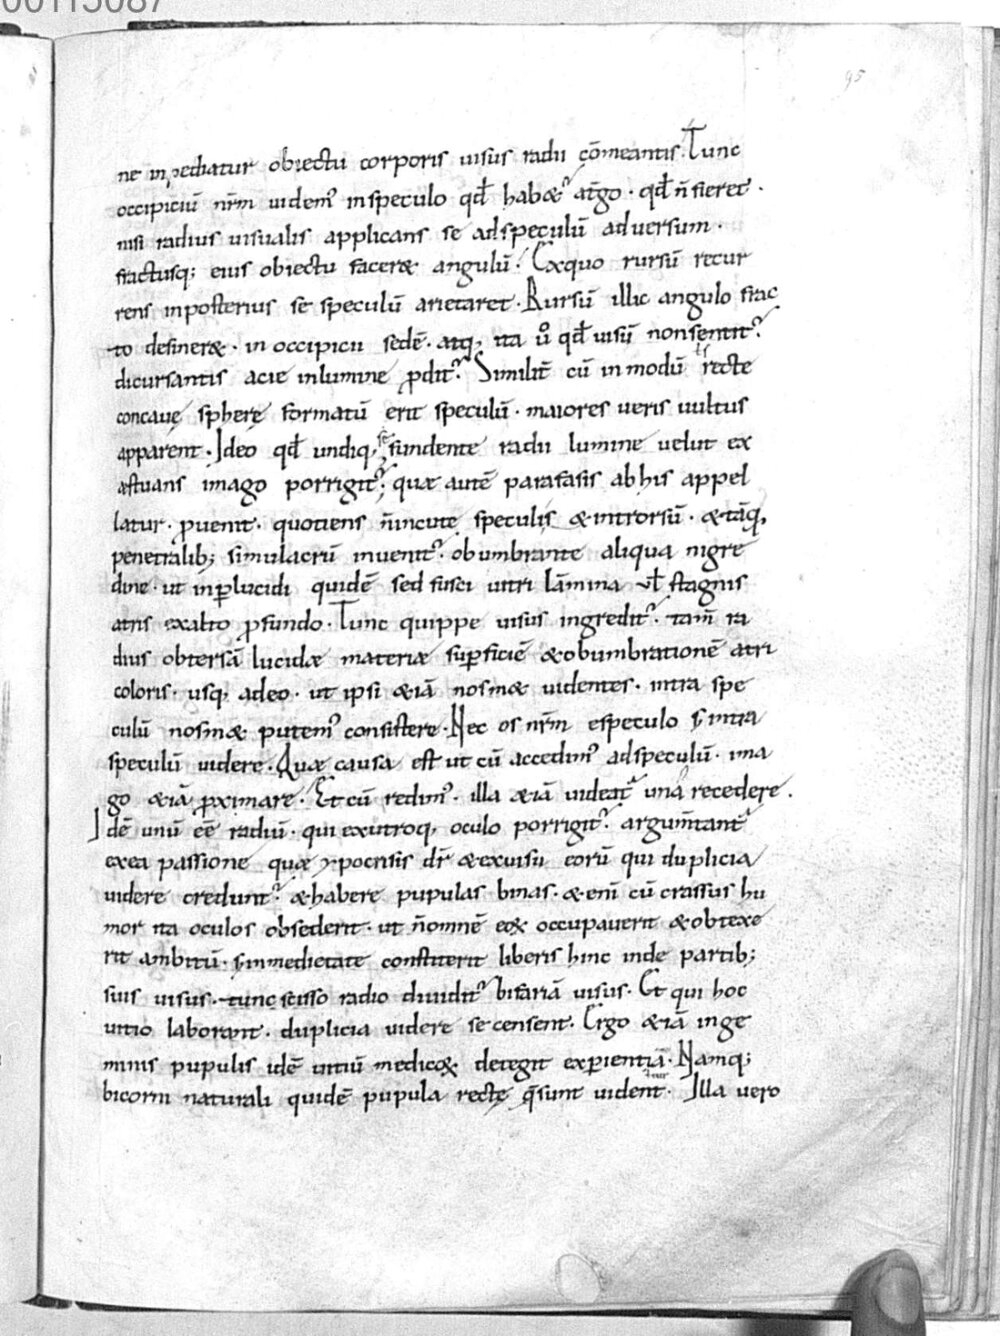 00115087
95
ne inpediatur obiectu corporis uisus radii cōmeantis. Tunc
occipiciū nr̄m uidem᾿ inspeculo qd̄ habet᾿ at̄go · qd̄ n̄ fieret ·
nisi radius uisualis applicans se adspeculū aduersum ·
fractusq; eius obiectu facer& angulū. Exquo rursū recur
rens inposterius se speculū arietaret. Rursū illic angulo frac
to desiner& · in occipicii sedē · atq, ita ū qd̄ uisū nonsentit᾿
dicursantis acie inlumine ꝓdit᾿. Similit̄ cū in modū recte
concauę spherę formatū erit speculū · maiores ueris uultus
apparent. Ideo qd̄ undiq, se fundente radii lumine uelut ex
æstuans imago porrigit᾿; quæ autē parafasis ab his appel
latur · ꝓuenit · quotiens n̄incutę speculis &introrsū · &tāq,
penetralib; simulacrū inuenit᾿ · obumbrante aliqua nigre
dine · ut inꝑlucidi quidē sed fusci uitri lāmina ul̄ stagnis
atris exalto ꝓfundo. Tunc quippe uisus ingredit᾿ · tam̄ ra
dius obtersā lucidæ materiæ suꝑficiē &obumbrationē atri
coloris · usq, adeo · ut ipsi &iā nosm& uidentes · intra spe
culū nosm& putem᾿ consistere. Nec os nr̄m especulo s; intra
speculū uidere. Quæ causa est ut cū accedim᾿ adspeculū · ima
go &iā ꝓximare. Et cū redim᾿ · illa &iā uideat᾿ una recedere.
Idē unū eē radiū · qui exutroq, oculo porrigit᾿ · argum̄tant᾿
exea passione quæ ypocrisis dr̄ &exuisu eorū qui duplicia
uidere credunt᾿ · &habere pupulas binas · &eni cū crassus hu
mor ita oculos obsederit · ut n̄omnē eo& occupauerit &obtexe
rit ambitū · s;inmedietate constiterit liberis hinc inde partib;
suis uisus · tunc scisso radio diuidit᾿ bifariā uisus. Et qui hoc
uitio laborant · duplicia uidere se censent. Ergo &iā inge
minis pupulis idē uitiū medico& detegit exꝑientia. Namq;
bicorni naturali quidē pupula rectę q̄sunt uident᾿. Illa uero